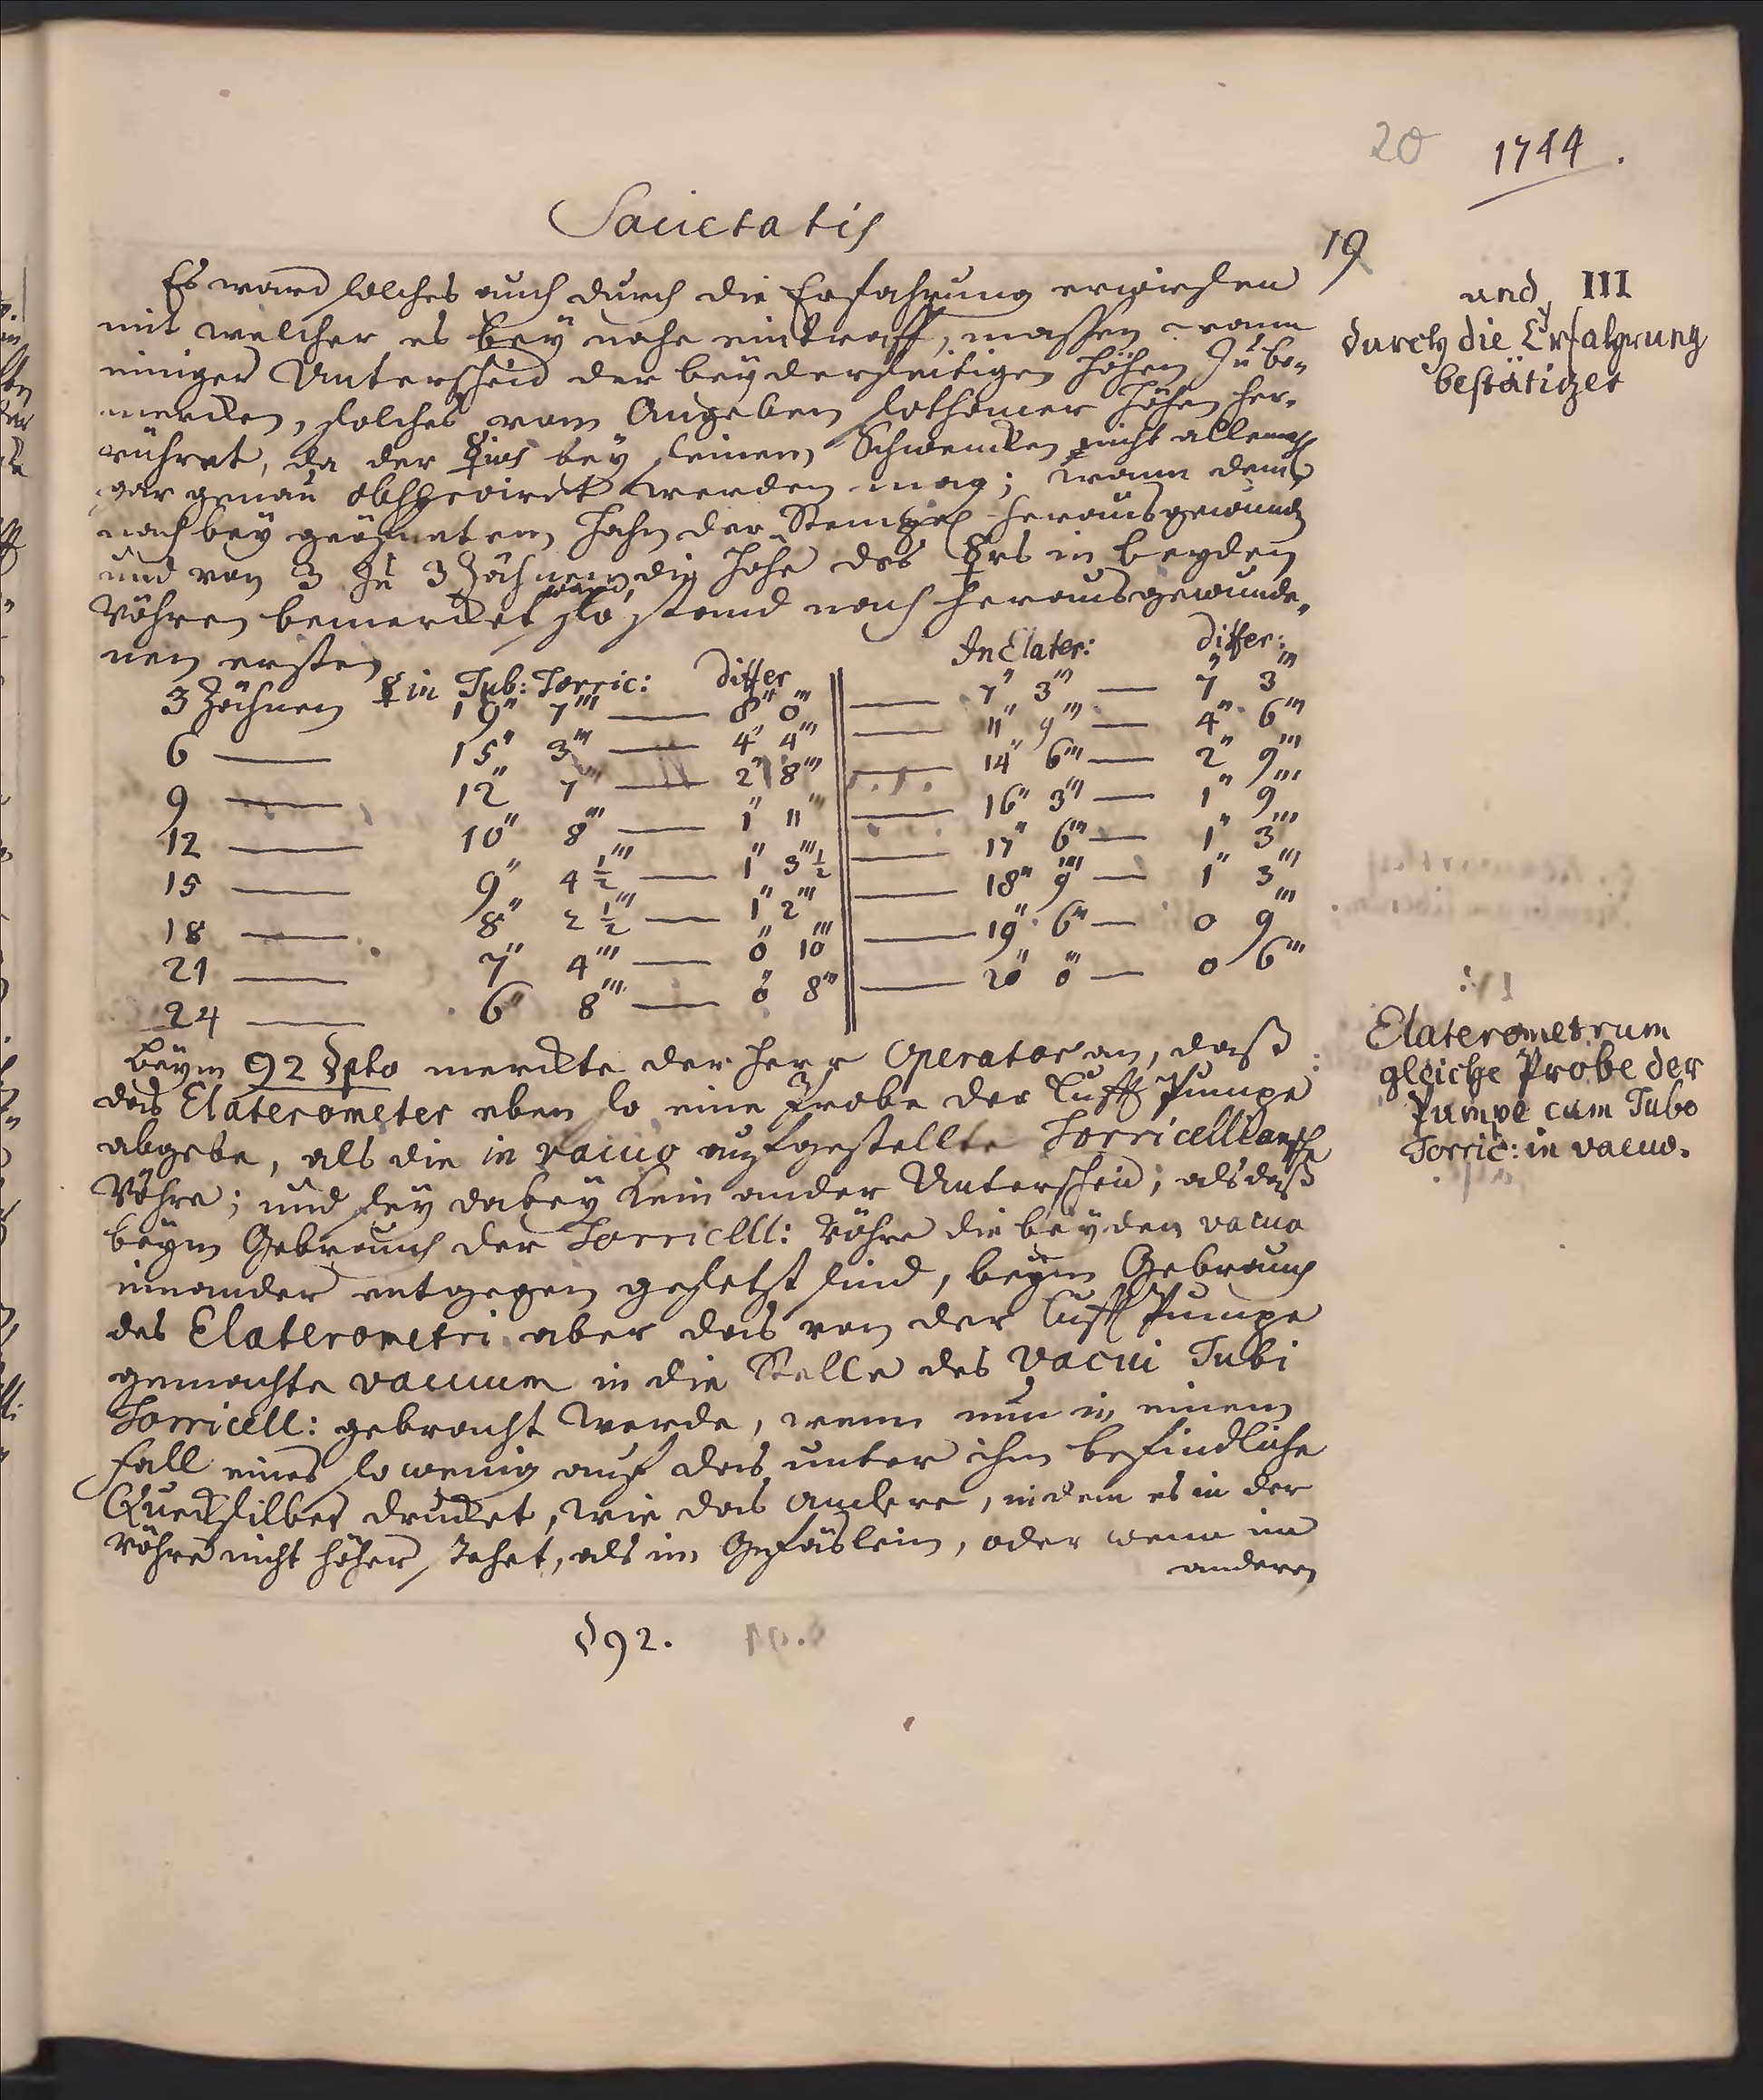 20 1744.
Societatis
19
Es ward solches auch durch die Erfahrung erwiesen
mit welcher es bey nahe eintraff, massen wann
einiger Unterscheid der beyderseitigen Höhen zu be-
mercken, solches vom Angeben sothaner Höhen her-
rühret, da der ☿ius bey seinem Schwencken nicht allemahl
gar genau observiret werden mag; wann dem
nach bey geöfneten Hahn der Stempel herausgewunden
und von 3 zu 3 Zähnen die Höhe des ☿rs in beyden
Röhren bemercket ward, so stand nach herausgewunde-
nen ersten
In Elater: Differ:
3 Zähnen ☿ in Tub: Torric: Differ
19" 7"' — 8" 0"' || — 7" 3"' — 7" 3"'
6 — 15" 3"' — 4" 4"' || — 11" 9"' — 4" 6"'
9 — 12" 7"' — 2" 8"' || — 14" 6"' — 2" 9"'
12 — 10" 8"' — 1" 11"' || — 16" 3"' — 1" 9"'
15 — 9" 4½"' — 1" 3"'½ || — 17" 6"' — 1" 3"'
18 — 8" 2½"' — 1" 2"' || — 18" 9"' — 1" 3"'
21 — 7" 4"' — 0" 10"' || — 19" 6"' — 0 9"'
24 — 6" 8"' — 0" 8"' || — 20" 0"' — 0 6"'
Beym 92 §pho merckte der Herr Operator an, daß
das Elaterometer eben so eine Probe der Lufft Pumpe
abgebe, als die in vacuo aufgestellte Torricellianische
Röhre; und sey dabey kein ander Unterscheid, als daß
beym Gebrauch der Torricell: Röhre die beyden vacua
einander entgegen gesetzt sind, beym Gebrauch
des Elaterometri aber das von der Lufft Pumpe
gemachte vacuum in die Stelle des vacui Tubi
Torricell: gebracht werde, wenn nun in einem
Fall eines so wenig auf das unter ihm befindliche
Quecksilber drucket, wie das andere, indem es in der
Röhre nicht höher stehet, als im Gefäslein, oder wenn im
anderen
§ 92.
und III
durch die Erfahrung
bestätiget
Elaterometrum
gleiche Probe der
Pumpe cum Tubo
Torric: in vacuo.